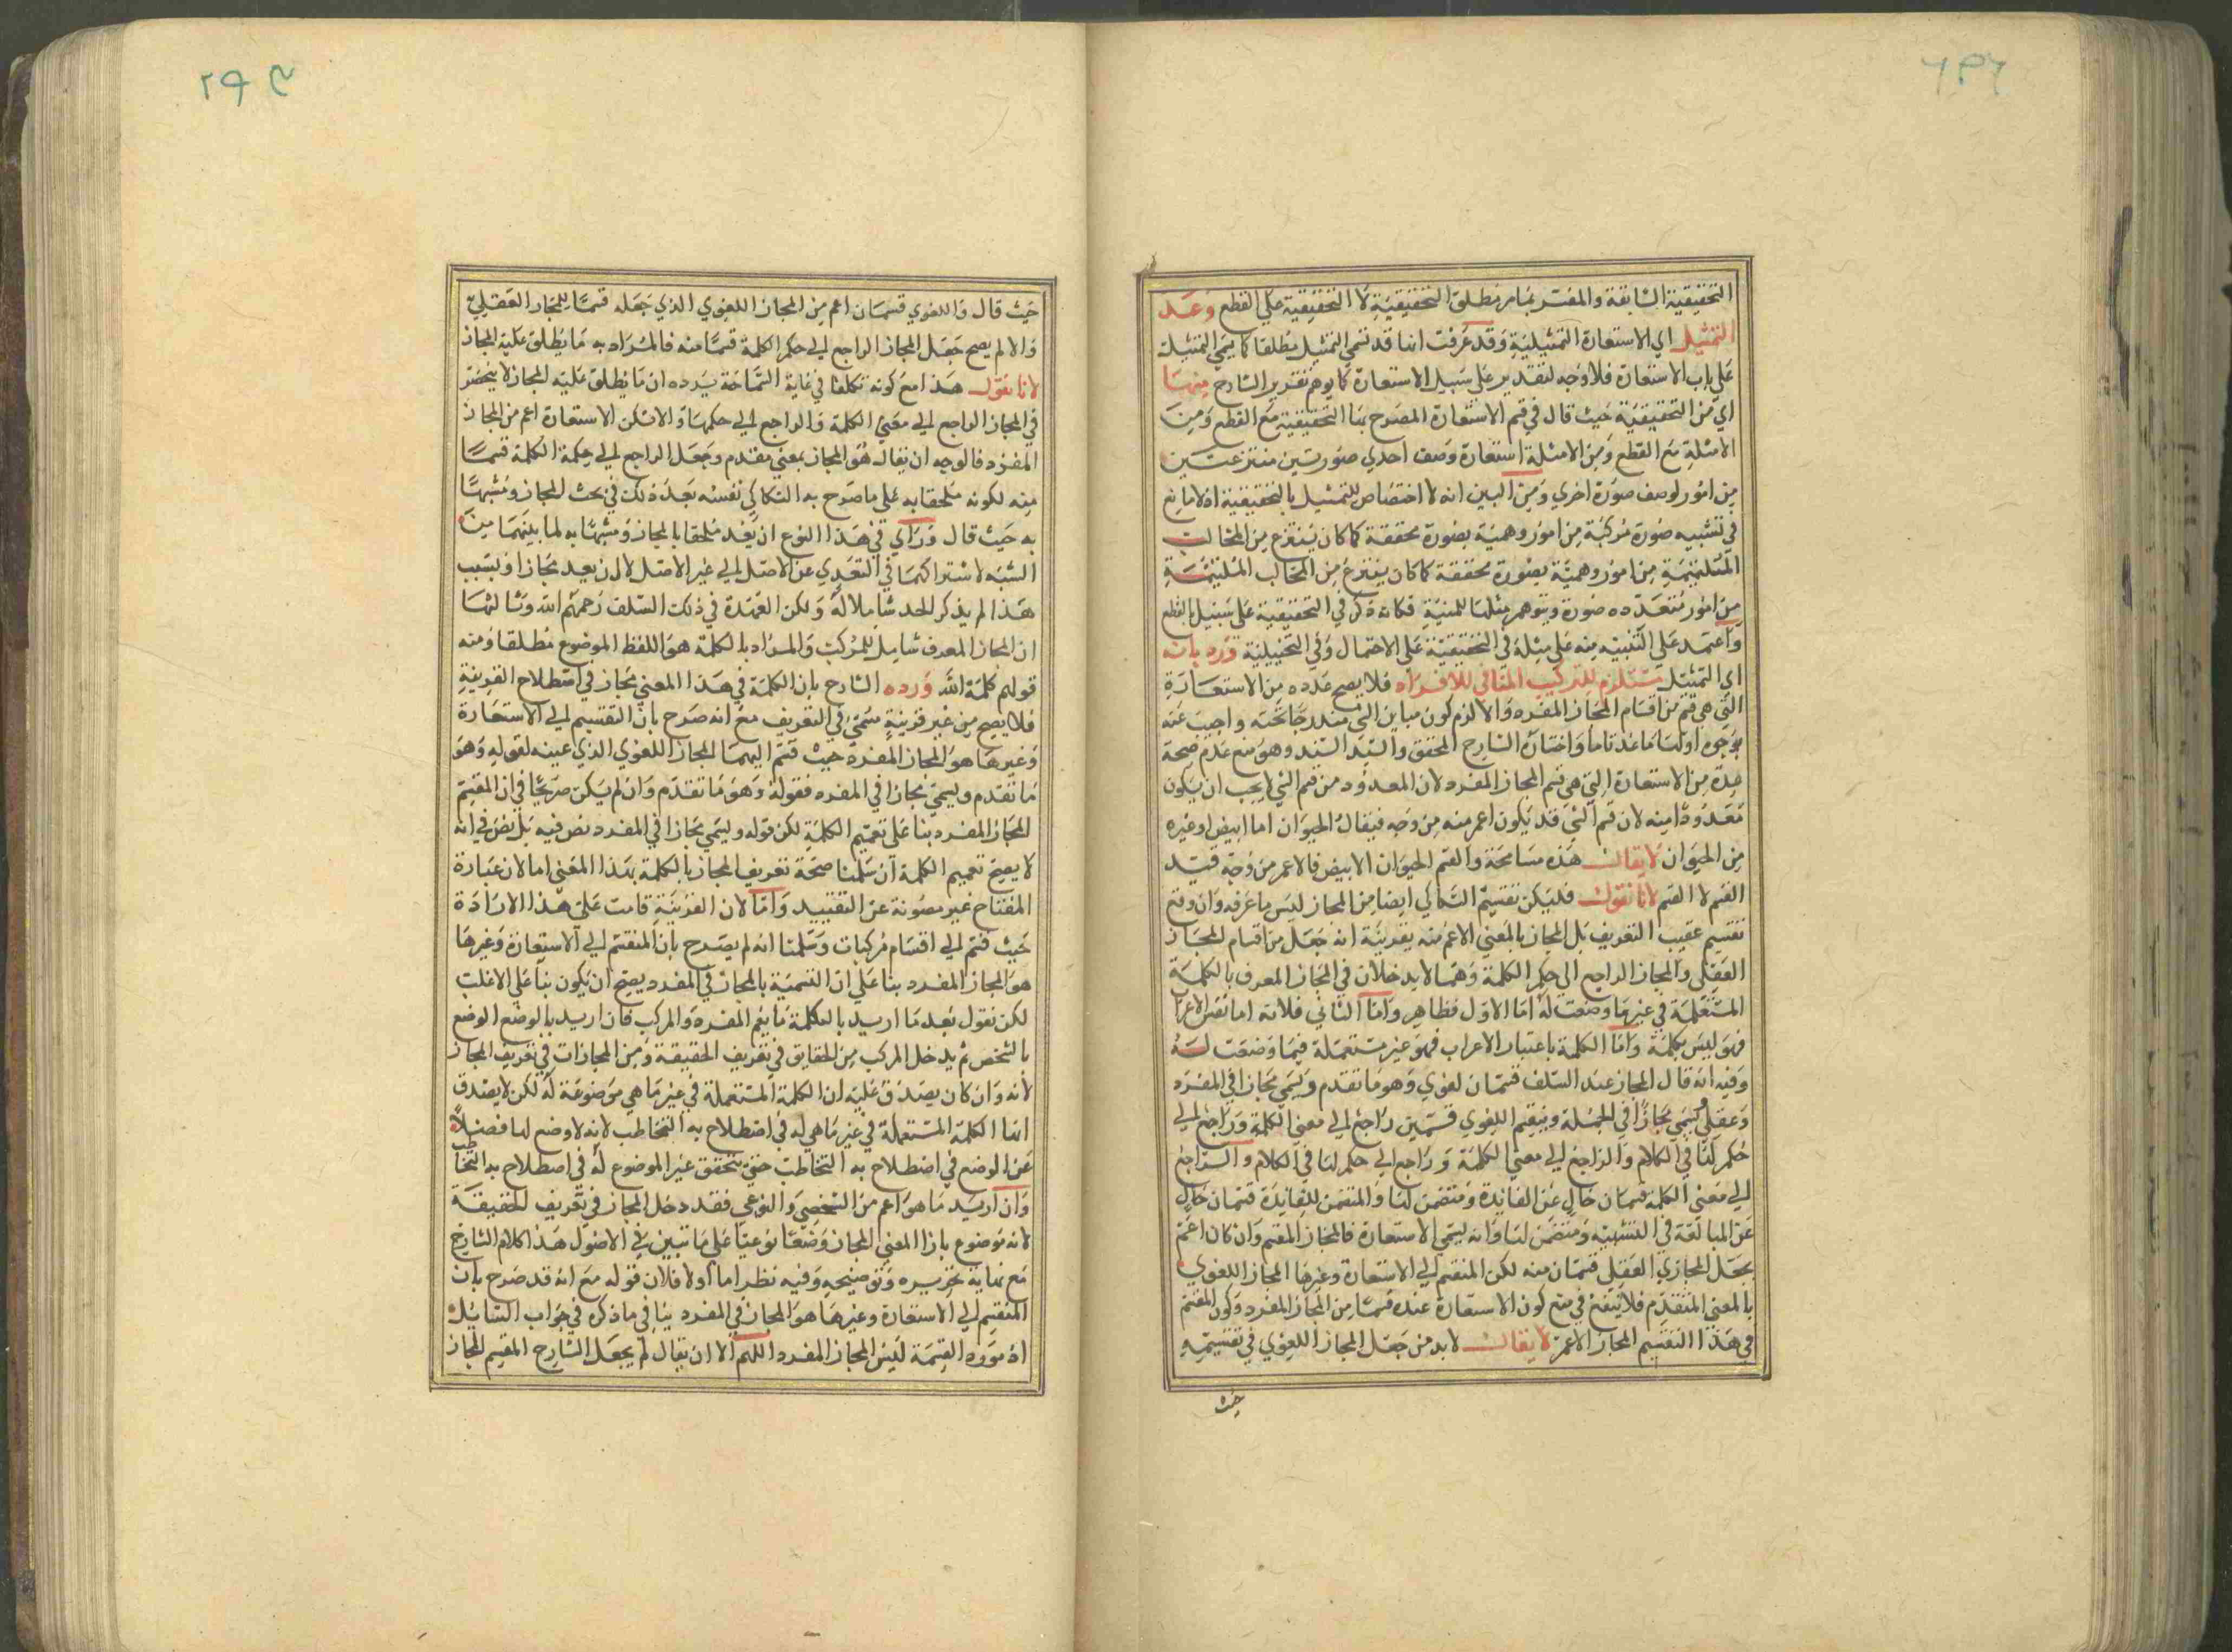 التحقيقية السابقة والمفسر بما مر مطلق التحقيقية لا التحقيقية على القطع وعد
التمثيل اي الاستعارة التمثيلية وقد عرفت انها قد تسمى التمثيل مطلقا كما يسمى التمثيل
على باب الاستعارة فلا وجه لتقديم على سبيل الاستعارة كما يوهم تقرير الشارح منها
اي من التحقيقية حيث قال في قسم الاستعارة المصرح بها التحقيقية مع القطع ومن
الامثلة مع القطع ومن الامثلة استعارة وصف احدى صورتين منتزعتين
من امور لوصف صورة اخرى ومن البين انه لا اختصاص للتمثيل بالتحقيقية اذ لا مانع
في تشبيه صورة مركبة من امور وهمية بصورة محققة كما كان ينتزع من المخالب
المتلبثمة من امور وهمية بصورة محققة كما كان ينتزع من المخالب المتلبثمة
من امور متعدده صورة ويتوهم مثلها للمنية فكانه ذكر في التحقيقية على سبيل القطع
واعتمد على التنبيه منه على مثله في التحقيقية على الاحتمال وفي التخييلية ورد بانه
اي التمثيل مستلزم للتركيب المنافي للافراد فلا يصح عده من الاستعارة
التي هي قسم من اقسام المجاز المفرد والا لزم كون مباين الشي مندرجا تحته واجيب عنه
بوجوه اولها ما عد تاما واختاره الشارح المحقق والسيد السند وهو منع عدم صحة
عده من الاستعارة التي هي قسم المجاز المفرد لان المعدود من قسم الشي لا يجب ان يكون
معدودا منه لان قسم الشي قد يكون اعم منه من وجه فيقال الحيوان اما ابيض او غيره
من الحيوان لا يقال هذه مسامحة والقسم الحيوان الابيض فالاعم من وجه قيد
القسم لا القسم لانا نقول فليكن تقسيم السكاكي ايضا من المجاز ليس ما عرفه وان وقع
تقسيم عقيب التعريف بل المجاز بالمعنى الاعم منه بقرينة انه جعل من اقسام المجاز
العقلي والمجاز الراجع الى حكم الكلمة وهما لا يدخلان في المجاز المعرف بالكلمة
المستعملة في غير ما وضعت له اما الاول فظاهر واما الثاني فلانه اما نفس الاعرا
فهو ليس بكلمة واما الكلمة باعتبار الاعراب فهو غير مستعملة فيما وضعت له
وفيه انه قال المجاز عند السلف قسمان لغوي وهو ما تقدم ويسمى مجازا في المفرد
وعقلي يسمى مجازا في الجملة وينقسم اللغوي قسمين راجع الى معنى الكلمة وراجع الى
حكم لها في الكلام والراجع الى معنى الكلمة وراجع الى حكم لها في الكلام والراجع
الى معنى الكلمة قسمان خال عن الفائدة ومتضمن لها والمتضمن للفائدة قسمان خال
عن المبالغة في التشبيه ومتضمن لها وانه يسمى الاستعارة فالمجاز المقسم وان كان اعم
بجعل المجازي العقلي قسمان منه لكن المنقسم الى الاستعارة وغيرها المجاز اللغوي
بالمعنى المتقدم فلا ينفع في منع كون الاستعارة عنده قسما من المجاز المفرد وكون المقسم
في هذا التقسيم المجاز الاعم لا يقال لا بد من جعل المجاز اللغوي في تقسيمه
حيث
حيث قال واللغوي قسمان اعم من المجاز اللغوي الذي جعله قسما للمجاز العقلي
والا لم يصح جعل المجاز الراجع الى حكم الكلمة قسما منه فالمراد به ما يطلق عليه المجاز
لانا نقول هذا مع كونه تكلفا في غاية السماجة يرده ان ما يطلق عليه المجاز لا ينحصر
في المجاز الراجع الى معنى الكلمة والراجع الى حكمها والا لم تكن الاستعارة اعم من المجاز
المفرد فالوجه ان يقال هو المجاز بمعنى مقدم وجعل الراجع الى حكمة الكلمة قسما
منه لكونه ملحقا به على ما صرح به السكاكي نفسه بعد ذلك في بحث المجاز ومشبها
به حيث قال وراي في هذا النوع ان يعد ملحقا بالمجاز ومشبها به لما بينهما من
الشبه لاشتراكهما في التعدي عن الاصل الى غير الاصل لا ان يعد مجازا وبسبب
هذا لم يذكر الحد شاملا له ولكن العهدة في ذلك السلف رحمهم الله وثالثها
ان المجاز المعرف شامل للمركب والمراد بالكلمة هو اللفظ الموضوع مطلقا ومنه
قولهم كلمة الله ورده الشارح بان الكلمة في هذا المعنى مجاز في اصطلاح القرينة
فلا يصح من غير قرينة سمى في التعريف مع انه صرح بان التقسيم الى الاستعارة
وغيرها هو المجاز المفرد حيث قسم اليهما المجاز اللغوي الذي عينه لقوله وهو
ما تقدم ويسمى مجازا في المفرد فقوله وهو ما تقدم وان لم يكن صريحا في ان المقسم
المجاز المفرد بنا على تعميم الكلمة لكن قوله ويسمى مجازا في المفرد نص فيه بل نص في انه
لا يصح تعميم الكلمة ان سلمنا صحة تعريف المجاز بالكلمة بهذا المعنى اما لان عبارة
المفتاح غير مصونة عن التقييد واما لان القرينة قامت على هذا الارادة
حيث قسم الى اقسام مركبات وسلمنا انه لم يصرح بان المنقسم الى الاستعارة وغيرها
هو المجاز المفرد بنا على ان التسمية بالمجاز في المفرد يصح ان يكون بنا على الاغلب
لكن نقول بعد ما اريد بالكلمة ما يعم المفرد والمركب فان اريد بالوضع الوضع
بالشخص لم يدخل المركب من الحقايق في تعريف الحقيقة ومن المجازات في تعريف المجاز
لانه وان كان يصدق عليه ان الكلمة المستعملة في غير ما هي موضوعة له لكن لا يصدق
انها الكلمة المستعملة في غير ما هي له في اصطلاح به التخاطب لانه لا وضع لها فضلا
عن الوضع في اصطلاح به التخاطب حتى يتحقق غير الموضوع له في اصطلاح به التخاطب
وان اريد ما هو اعم من الشخصي والنوعي فقد دخل المجاز في تعريف الحقيقة
لانه موضوع بازا المعنى المجاز وضعا نوعيا على ما تبين في الاصول هذا كلام الشارح
مع نهاية تحريره وتوضيحه وفيه نظر اما اولا فلان قوله مع انه قد صرح بان
المنقسم الى الاستعارة وغيرها هو المجاز في المفرد ينافي ما ذكره في جواب السايل
اذ مورد القسمة ليس المجاز المفرد اللهم الا ان يقال لم يجعل الشارح المقسم المجاز